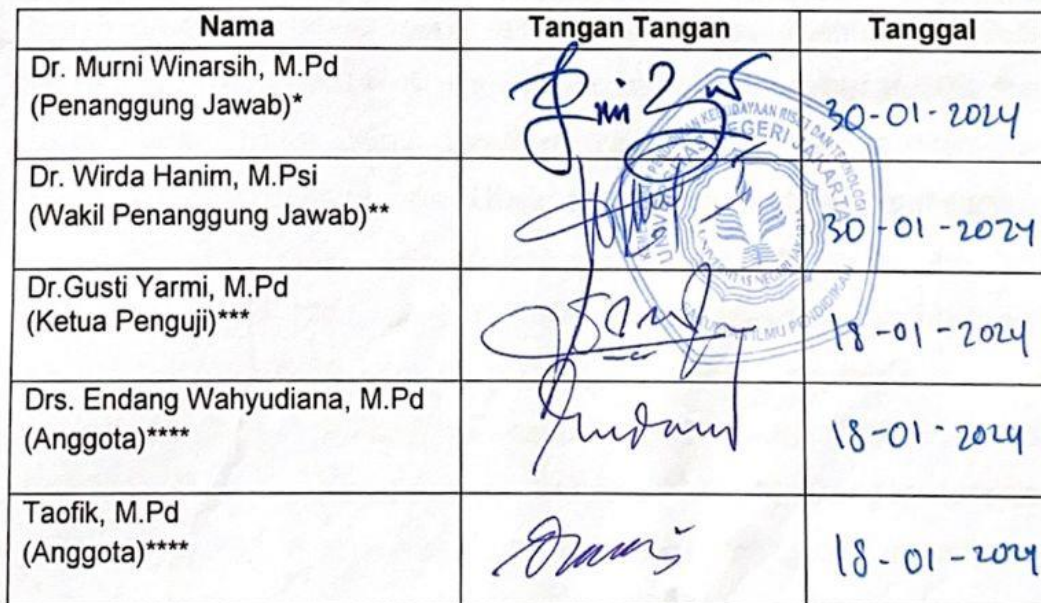 Nama Tangan Tangan Tanggal
Dr. Murni Winarsih, M.Pd
(Penanggung Jawab)*
30-01-2024
Dr. Wirda Hanim, M.Psi
(Wakil Penanggung Jawab)**
30-01-2024
Dr.Gusti Yarmi, M.Pd
(Ketua Penguji)***
18-01-2024
Drs. Endang Wahyudiana, M.Pd
(Anggota)****
18-01-2024
Taofik, M.Pd
(Anggota)****
18-01-2024
UNIVERSITAS NEGERI JAKARTA